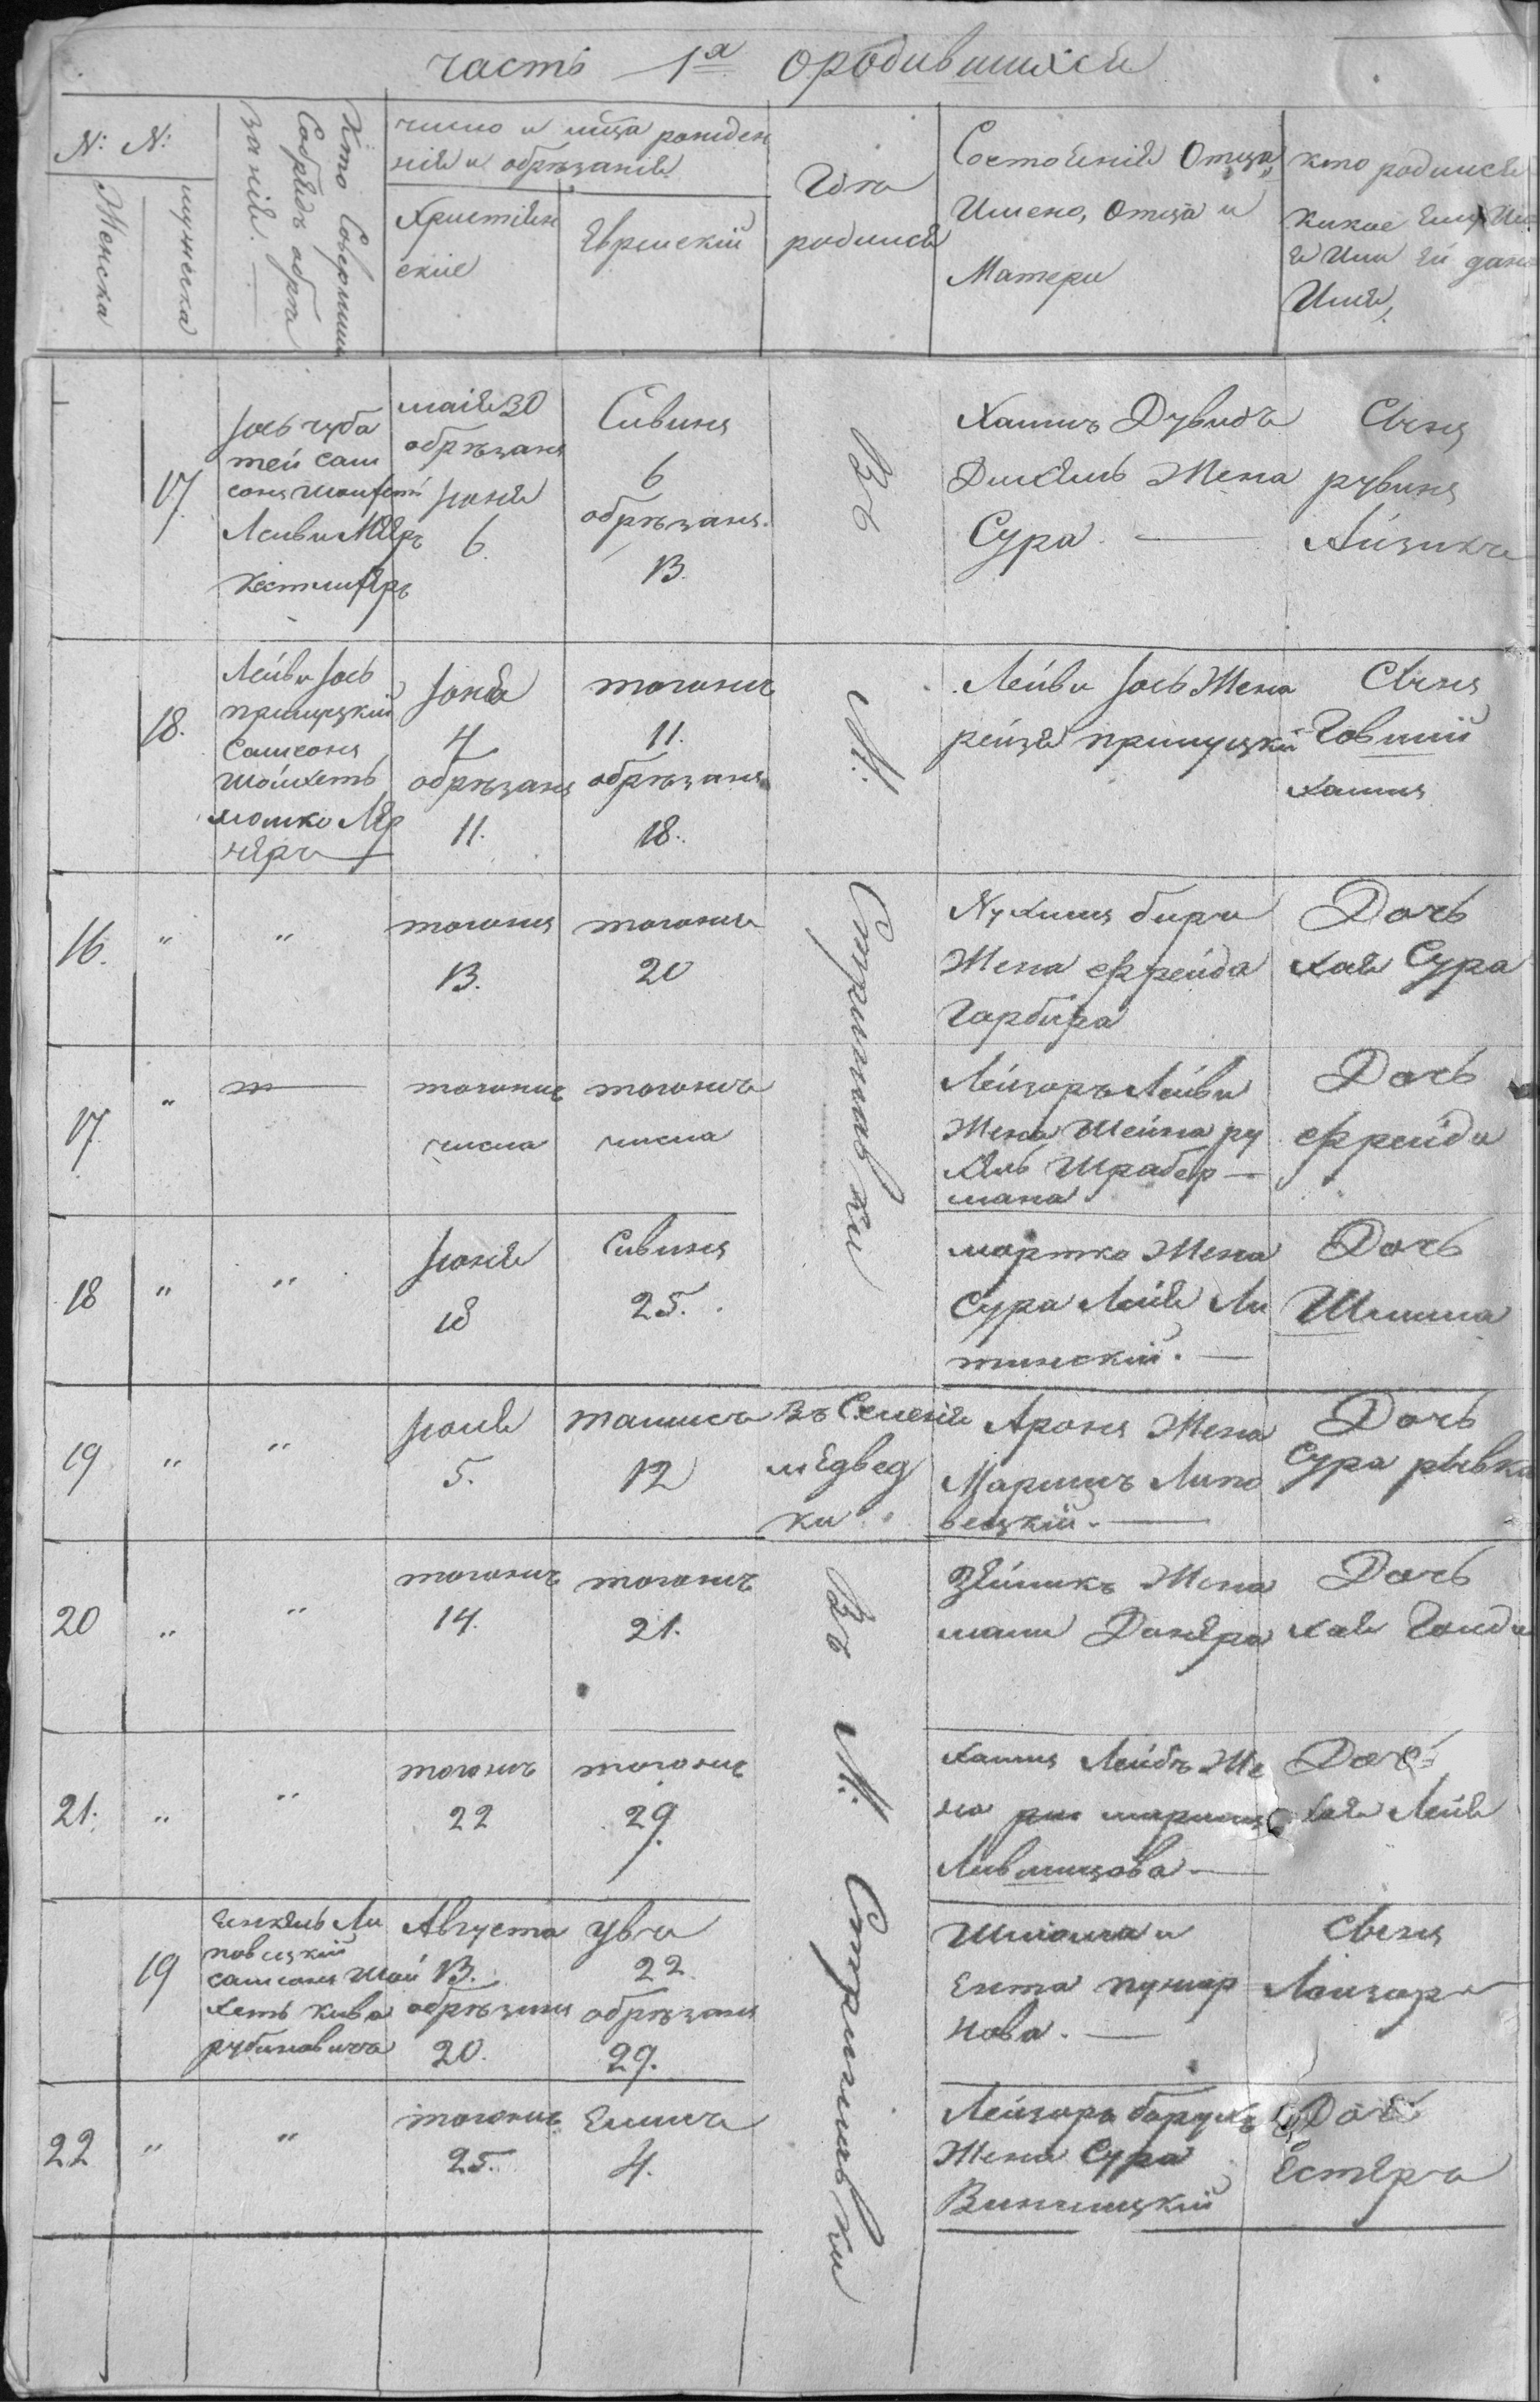 часть 1я ородившихся
№: №:
Женска
мужеска
Кто Соверши
Собрядъ обрѣ
занія.
число и мѣца рожден
нія и обрѣзанія
Христіян
скіе
Еврейскій
Гдѣ
родился
Состояніе Отца,
Имено, Отца и
Матери
кто родился
какое Ему Имя
и Или Ей дано
Имя,
17
тей Сам
маія 30
обрѣзаня
юня
6.
Сивиня
6
обрѣзаня.
13.
Въ
Хаимъ Дувидъ
Жена
Сура. —
Сыня
рувиня
Айзикъ
18.
Лейви Іось
прилуцкій
Самсоня
Шойхеть
мошко
юня
4
обрѣзаня
11.
тогожъ
11.
обрѣзаня
18.
М:
Лейви Іось Жена
рейзя прилуцкій
Сыня
Говшій
Хаимя
16.
"
"
тогожъ
13.
тогожъ
20
Стриживки
Нухимя бири
Жена фрейда
Гарбира
Дочь
хая Сура
17
"
тогожъ
числа
тогожъ
числа
Лейзоръ Лейви
Жена Шейна ру
хль Шрабер—
мана
Дочь
фрейда
18
"
"
юня
18
Сивиня
25.
мортко Жена
Сура Лейя Ли
тинскій. —
Дочь
19
"
"
юля
5.
тамисъ
12
Въ Селенія
медвед
ки
Ароня Жена
Марицъ Липо
вецкій. —
Дочь
Сура рывка
20
"
"
тогожъ
14.
тогожъ
21.
Въ М: Стриживки
Зейликъ Жена
Дочь
хая Голда
21.
"
"
тогожъ
22
тогожъ
29.
хаимя Лейбъ Же
на
Лившицова —
Дочь
хая Лейя
19
Липовецкій
самсоня Шой
хеть кива
рубиновича
Августа
13.
обрѣзаня
20.
Ува
22
обрѣзаня
29.
Шмоила и
Ента
нова. —
Сыня
Лейзоръ
22
"
"
тогожъ
25.
Елила
4.
Лейзоръ борухъ
Жена Сура
Винницкій
Дочь
Естяра